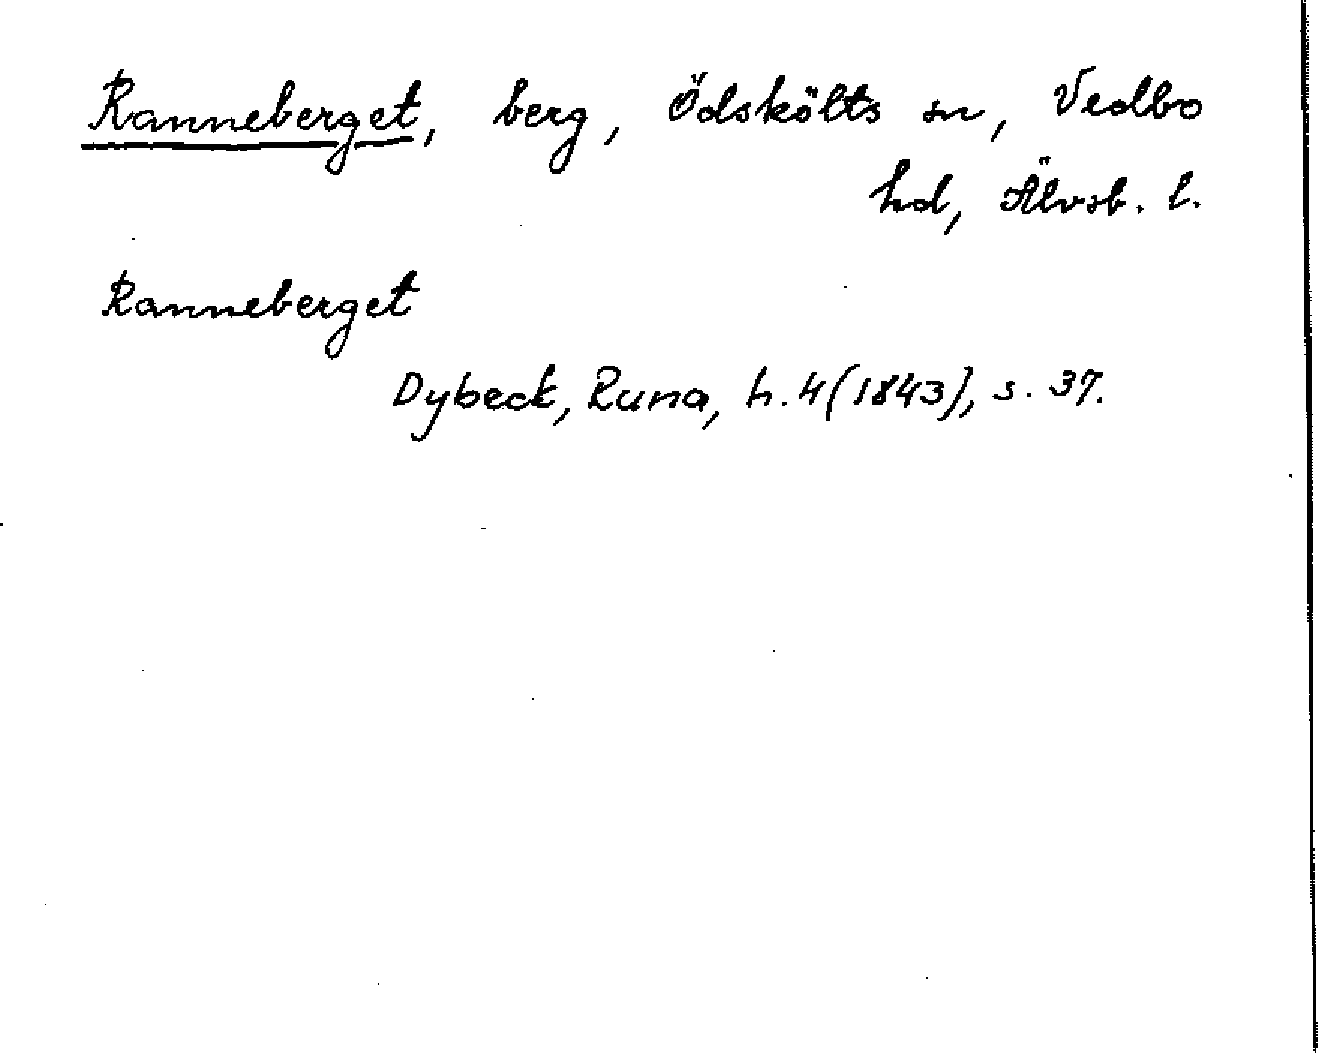 Ranneberget, berg, Ödskölts sn, Vedbo
hd, Älvsb. l.
Ranneberget
Dybeck, Runa, h. 4 (1843), s. 37.